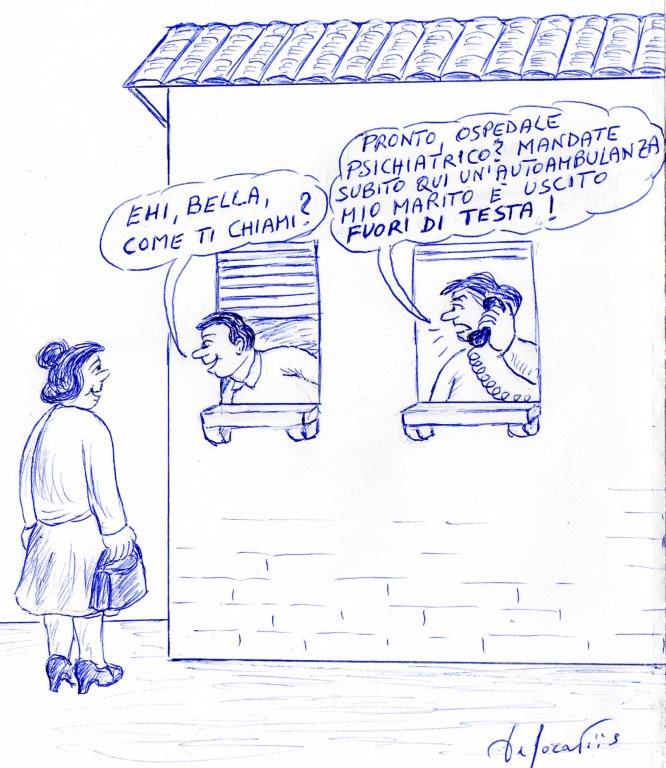 EHI, BELLA,
COME TI CHIAMI?
PRONTO, OSPEDALE
PSICHIATRICO? MANDATE
SUBITO QUI UN'AUTOAMBULANZA
MIO MARITO È USCITO
FUORI DI TESTA!